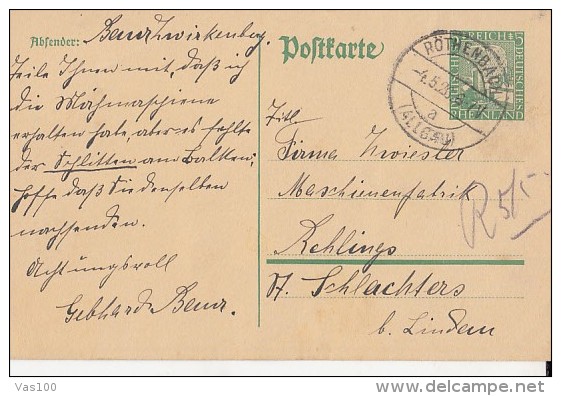 Absender: Benz Zwirkenberg.
Teile Ihnen mit, daß ich
die Mähmaschiene
erhalten habe, aber es fehlte
der Schlitten am Balken;
hoffe daß Sie denselben
nachsenden.
Achtungsvoll
Gebhard Benz.
Postkarte
DEUTSCHES REICH
5
RHEINLAND
RÖTHENBACH
-4.5.26
a
(ALLGÄU)
Titl.
Firma Zwiesler
Maschienenfabrik
Rehlings
St. Schlachters
b. Lindau
R 5/5
Vas100
delcampe.net